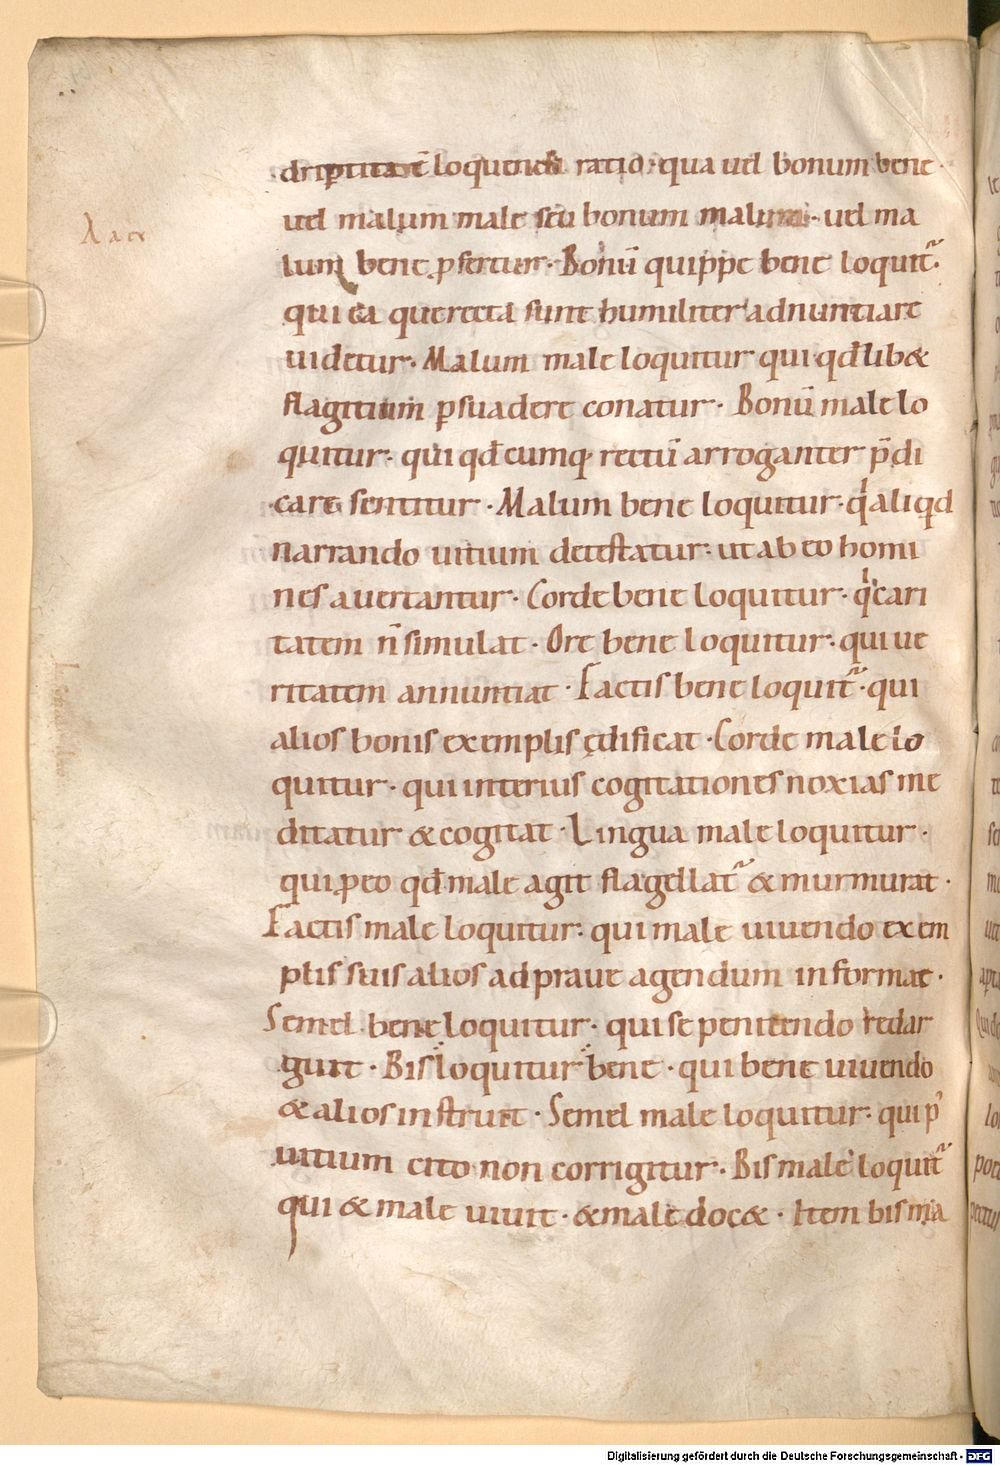 dripertitā ē loquendi ratio · qua uel bonum bene ·
uel malum male seu bonum malum · uel ma
lum bene ꝓfertur · Bonū quippe bene loquit᷑ ·
qui ea que recta sunt humiliter adnuntiare
uidetur · Malum male loquitur qui qđlib&
flagitium ꝑsuadere conatur · Bonū male lo
quitur · qui qđcumq; rectū arroganter p̄di
care sentitur · Malum bene loquitur · qͥ aliqͥd
narrando uitium detestatur · ut ab eo homi
nes auertantur · Corde bene loquitur · qͥ cari
tatem n̄ simulat · Ore bene loquitur · qui ue
ritatem annuntiat · Factis bene loquit᷑ · qui
alios bonis exemplis ędificat · Corde male lo
quitur · qui interius cogitationes noxias me
ditatur & cogitat · Lingua male loquitur ·
qui ꝓ eo qđ male agit flagellat᷑ & murmurat ·
Factis male loquitur · qui male uiuendo exem
plis suis alios ad praue agendum informat ·
Semel bene loquitur · qui se penitendo redar
guit · Bis loquitur bene · qui bene uiuendo
& alios instruit · Semel male loquitur · qui p᾽
uitium cito non corrigitur · Bis male loquit᷑
qui & male uiuit · & male doc& · Item bis ma
Digitalisierung gefördert durch die Deutsche Forschungsgemeinschaft - DFG